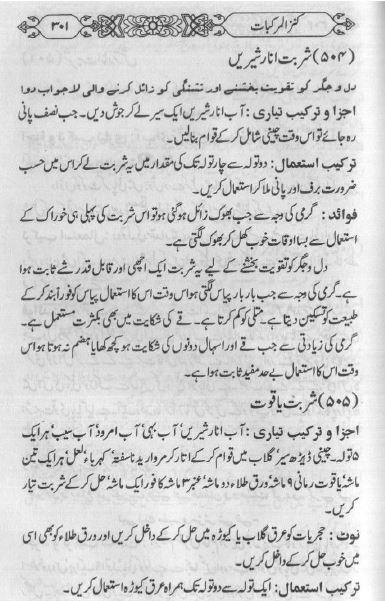 کنز المرکبات
۳۰۱
(۵۰۴) شربت انار شیریں
دل و جگر کو تقویت بخشنے اور تشنگی کو زائل کرنے والی لاجواب دوا
اجزا و ترکیب تیاری : آب انار شیریں ایک سیر لے کر جوش دیں۔ جب نصف پانی
رہ جائے تو اس وقت چینی شامل کر کے قوام بنالیں۔
ترکیب استعمال : دو تولہ سے چار تولہ تک کی مقدار میں یہ شربت لے کر اس میں حسب
ضرورت برف اور پانی ملا کر استعمال کریں۔
فوائد : گرمی کی وجہ سے جب بھوک زائل ہو گئی ہو تو اس شربت کی پہلی ہی خوراک کے
استعمال سے بسا اوقات خوب کھل کر بھوک لگتی ہے۔
دل و جگر کو تقویت بخشنے کے لیے یہ شربت ایک اچھی اور قابل قدر شے ثابت ہوا
ہے۔ گرمی کی وجہ سے جب بار بار پیاس لگتی ہو اس وقت اس کا استعمال پیاس کو فوراً بند کر کے
طبیعت کو تسکین دیتا ہے۔ متلی کو کم کرتا ہے۔ قے کی شکایت میں بھی بکثرت مستعمل ہے۔
گرمی کی زیادتی سے جب قے اور اسہال دونوں کی شکایت ہو کچھ کھایا ہضم نہ ہوتا ہو اس
وقت اس کا استعمال بے حد مفید ثابت ہوا ہے۔
(۵۰۵) شربت یاقوت
اجزا و ترکیب تیاری : آب انار شیریں' آب بہی' آب امرود' آب سیب' ہر ایک
۵ تولہ۔ چینی ڈیڑھ سیر' گلاب میں قوام کر کے اتار کر مروارید ناسفتہ' کہرباء' لعل' ہر ایک تین
ماشہ' یاقوت رمانی ۹ ماشہ' ورق طلاء دو ماشہ' عنبر ۳ ماشہ' کافور ایک ماشہ' حل کر کے شربت تیار
کریں۔
نوٹ : حجریات کو عرق گلاب یا کیوڑہ میں حل کر کے داخل کریں اور ورق طلاء کو بھی اسی
میں خوب حل کر کے داخل کریں۔
ترکیب استعمال : ایک تولہ سے دو تولہ تک ہمراہ عرق کیوڑہ استعمال کریں۔